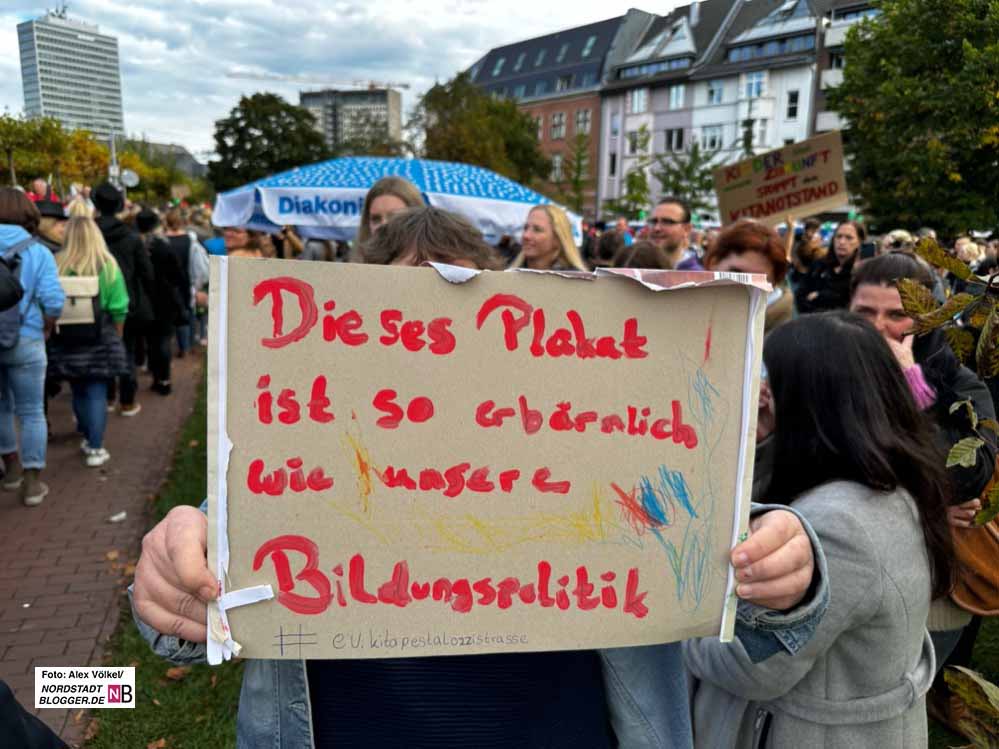 Diakoni
KINDER
ZUKUNFT
STOPPT den
KITANOTSTAND
Dieses Plakat
ist so erbärmlich
wie unsere
Bildungspolitik
# ev.kitapestalozzistrasse
Foto: Alex Völkel/
NORDSTADT
BLOGGER.DE NB